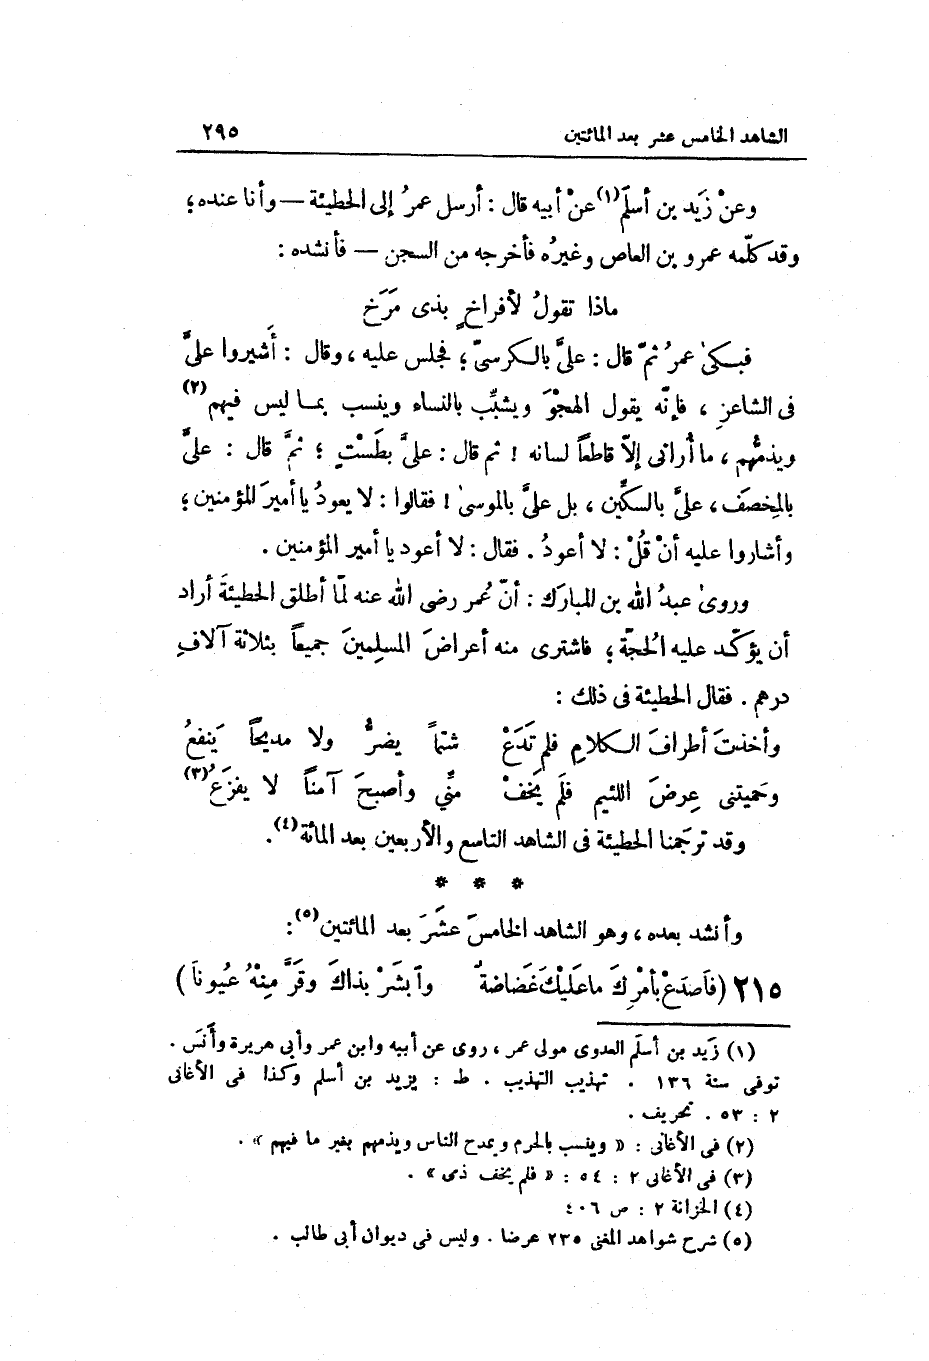 الشاهد الخامس عشر بعد المائتين ٢٩٥
وعنْ زَيد بن أسلَم(١) عنْ أبيه قال : أرسل عمرُ إلى الحطيئة — وأنا عنده ؛
وقد كلّمه عمرو بن العاص وغيرُه فأخرجه من السجن — فأنشده :
ماذا تقولُ لأفراخٍ بذى مَرَخ
فبكىٰ عمرُ ثمّ قال : علىَّ بالكرسىّ ؛ فجلس عليه ، وقال : أَشيروا علىَّ
فى الشاعرِ ، فإنّه يقول الهجْوَ ويشبِّب بالنساء وينسب بمـا ليس فيهم(٢)
ويذمُّهم ، ما أُرانى إلاّ قاطعاً لسانه ! ثم قال : علىَّ بطَسْتٍ ؛ ثمَّ قال : علىَّ
بالمِخصَف ، علىَّ بالسكِّين ، بل علىَّ بالموسىٰ ! فقالوا : لا يعودُ يا أميرَ المؤمنين ؛
وأشاروا عليه أنْ قُلْ : لا أعودُ . فقال : لا أعود يا أمير المؤمنين .
وروىٰ عبدُ الله بن المبارَك : أنّ عُمر رضى الله عنه لمّا أطلق الحطيئةَ أراد
أن يؤكّـد عليه الحُجّة ؛ فاشترى منه أعراضَ المسلِمينَ جميعاً بثلاثة آلافِ
درهم . فقال الحطيئة فى ذلك :
وأخذتَ أطرافَ الـكلامِ فلم تَدَعْ شتماً يضرُّ ولا مديحاً يَنفعُ
وحَميتنى عِرضَ اللئيم فلَم يَخفْ منّي وأصبحَ آمناً لا يفزَعُ(٣)
وقد ترجَمنا الحطيئة فى الشاهد التاسع والأربعين بعد المائة(٤).
* * *
وأنشد بعده ، وهو الشاهد الخامسَ عشَرَ بعد المائتين(٥):
٢١٥ (فَاصدَعْ بأمْرِكَ ما عَلَيْكَ غَضاضةٌ وآبشَرْ بذاكَ وقَرَّ مِنْهُ عُيُونَا)
(١) زَيد بن أسلَم العدوى مولى عمر ، روى عن أبيه وابن عمر وأبى هريرة وأَنَس .
توفى سنة ١٣٦ . تهذيب التهذيب . ط : يزيد بن أسلم وكذا فى الأغانى
٢ : ٥٣ . تحريف .
(٢) فى الأغانى : « وينسب بالحرم ويمدح الناس ويذمهم بغير ما فيهم » .
(٣) فى الأغانى ٢ : ٥٤ : « فلم يخف ذى » .
(٤) الخزانة ٢ : ص ٤٠٦
(٥) شرح شواهد المغنى ٢٣٥ عرضا . وليس فى ديوان أبى طالب .